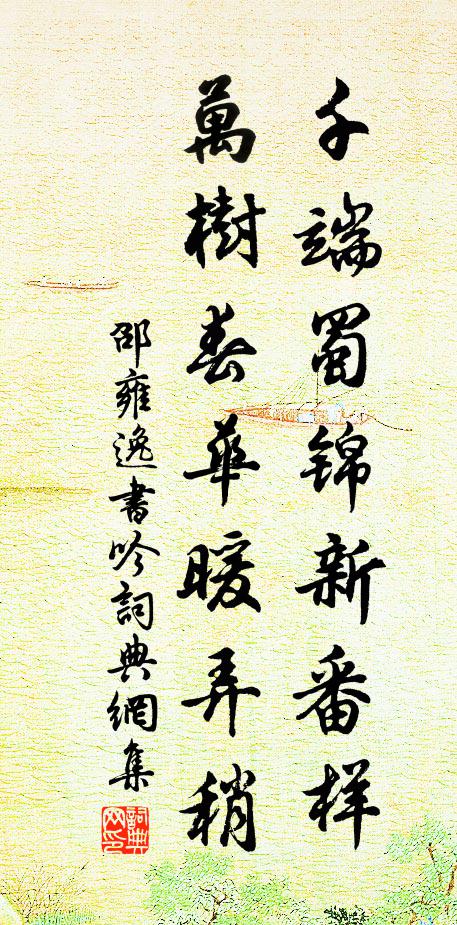 千端蜀锦新番样
萬樹春華暖弄稍
邵雍逸書吟詞典網集
詞典網印